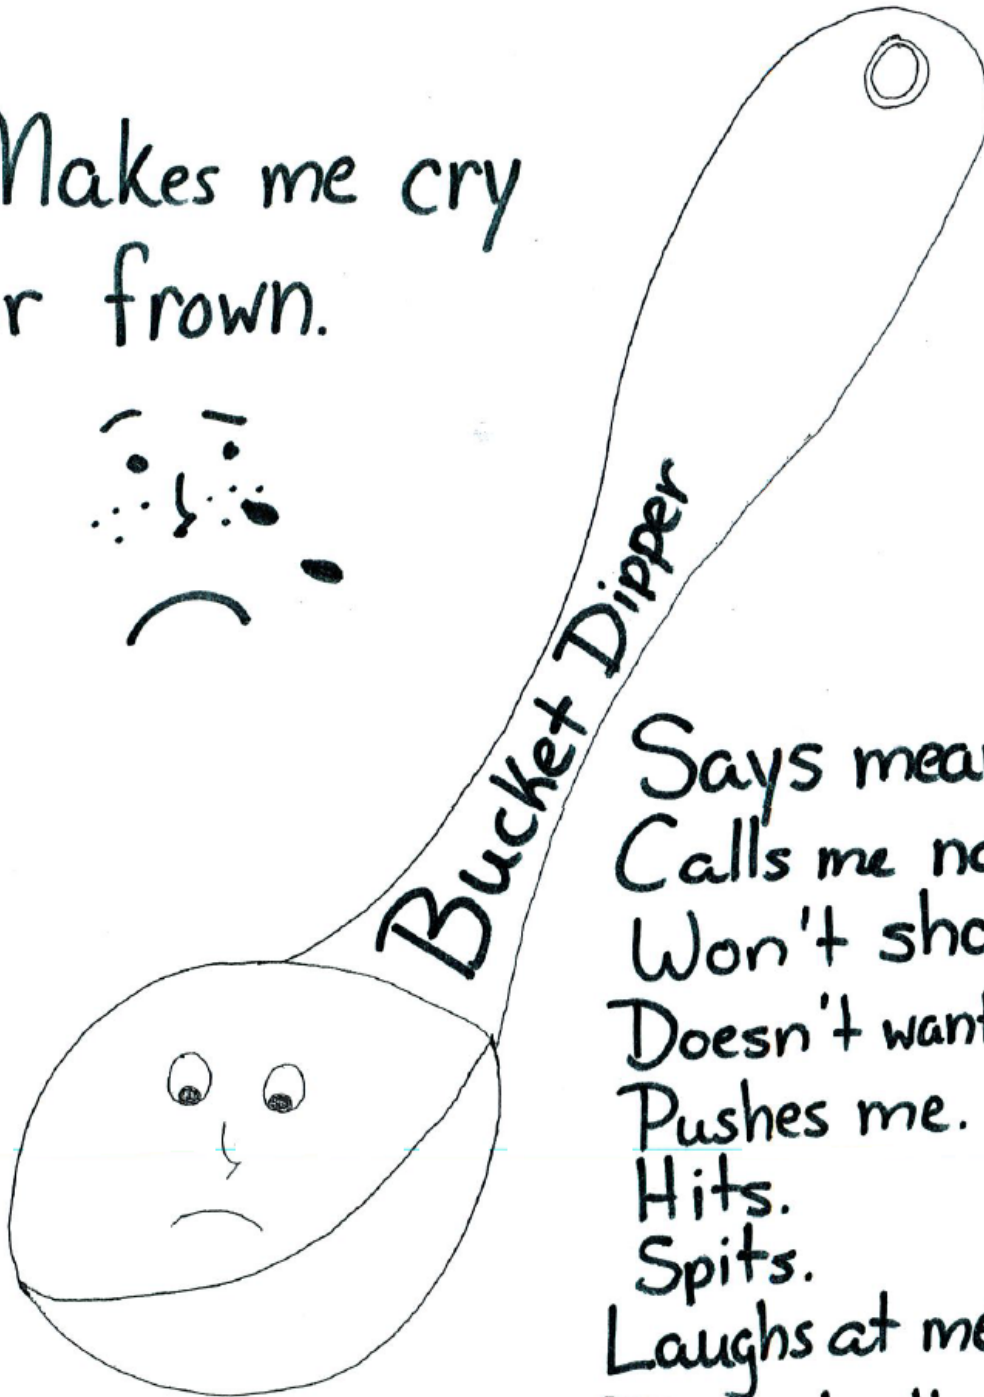 Makes me cry
r frown.
Bucket Dipper
Says mea
Calls me na
Won't sha
Doesn't want
Pushes me.
Hits.
Spits.
Laughs at me